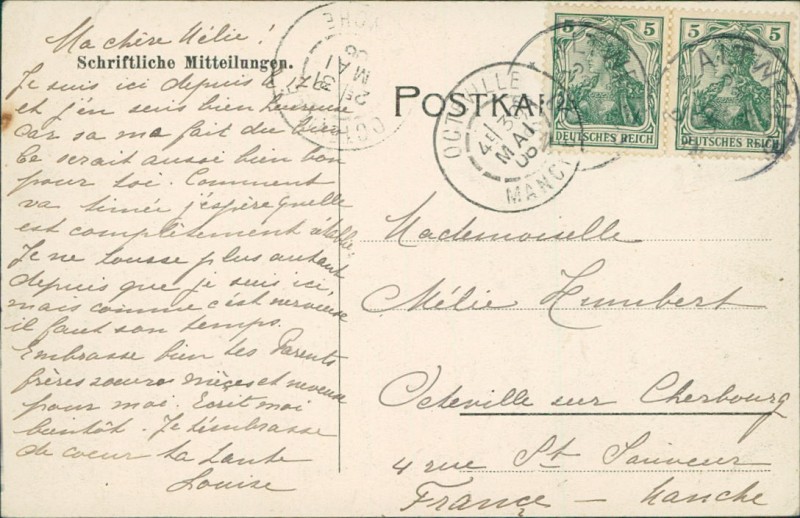 Ma chère Mélie !
Schriftliche Mitteilungen.
Je suis ici depuis le 17
et j'en suis bien heureuse
car sa me fait du bien
Ce serait aussi bien bon
pour toi. Comment
va timée j'espère qu'elle
est complètement rétablie
Je ne tousse plus autant
depuis que je suis ici,
mais comme c'est nerveuse
il faut son temps.
Embrasse bien tes Parents
frères soeurs nièces et neveux
pour moi. Ecrit moi
bientôt. Je t'embrasse
de coeur ta tante
Louise
POSTKARTE
5 5
5 5
DEUTSCHES REICH
DEUTSCHES REICH
OCTEVILLE
4E 31
MAI
06
MANCHE
Mademoiselle
Mélie Humbert
Octeville sur Cherbourg
4 rue St Sauveur
France - Manche